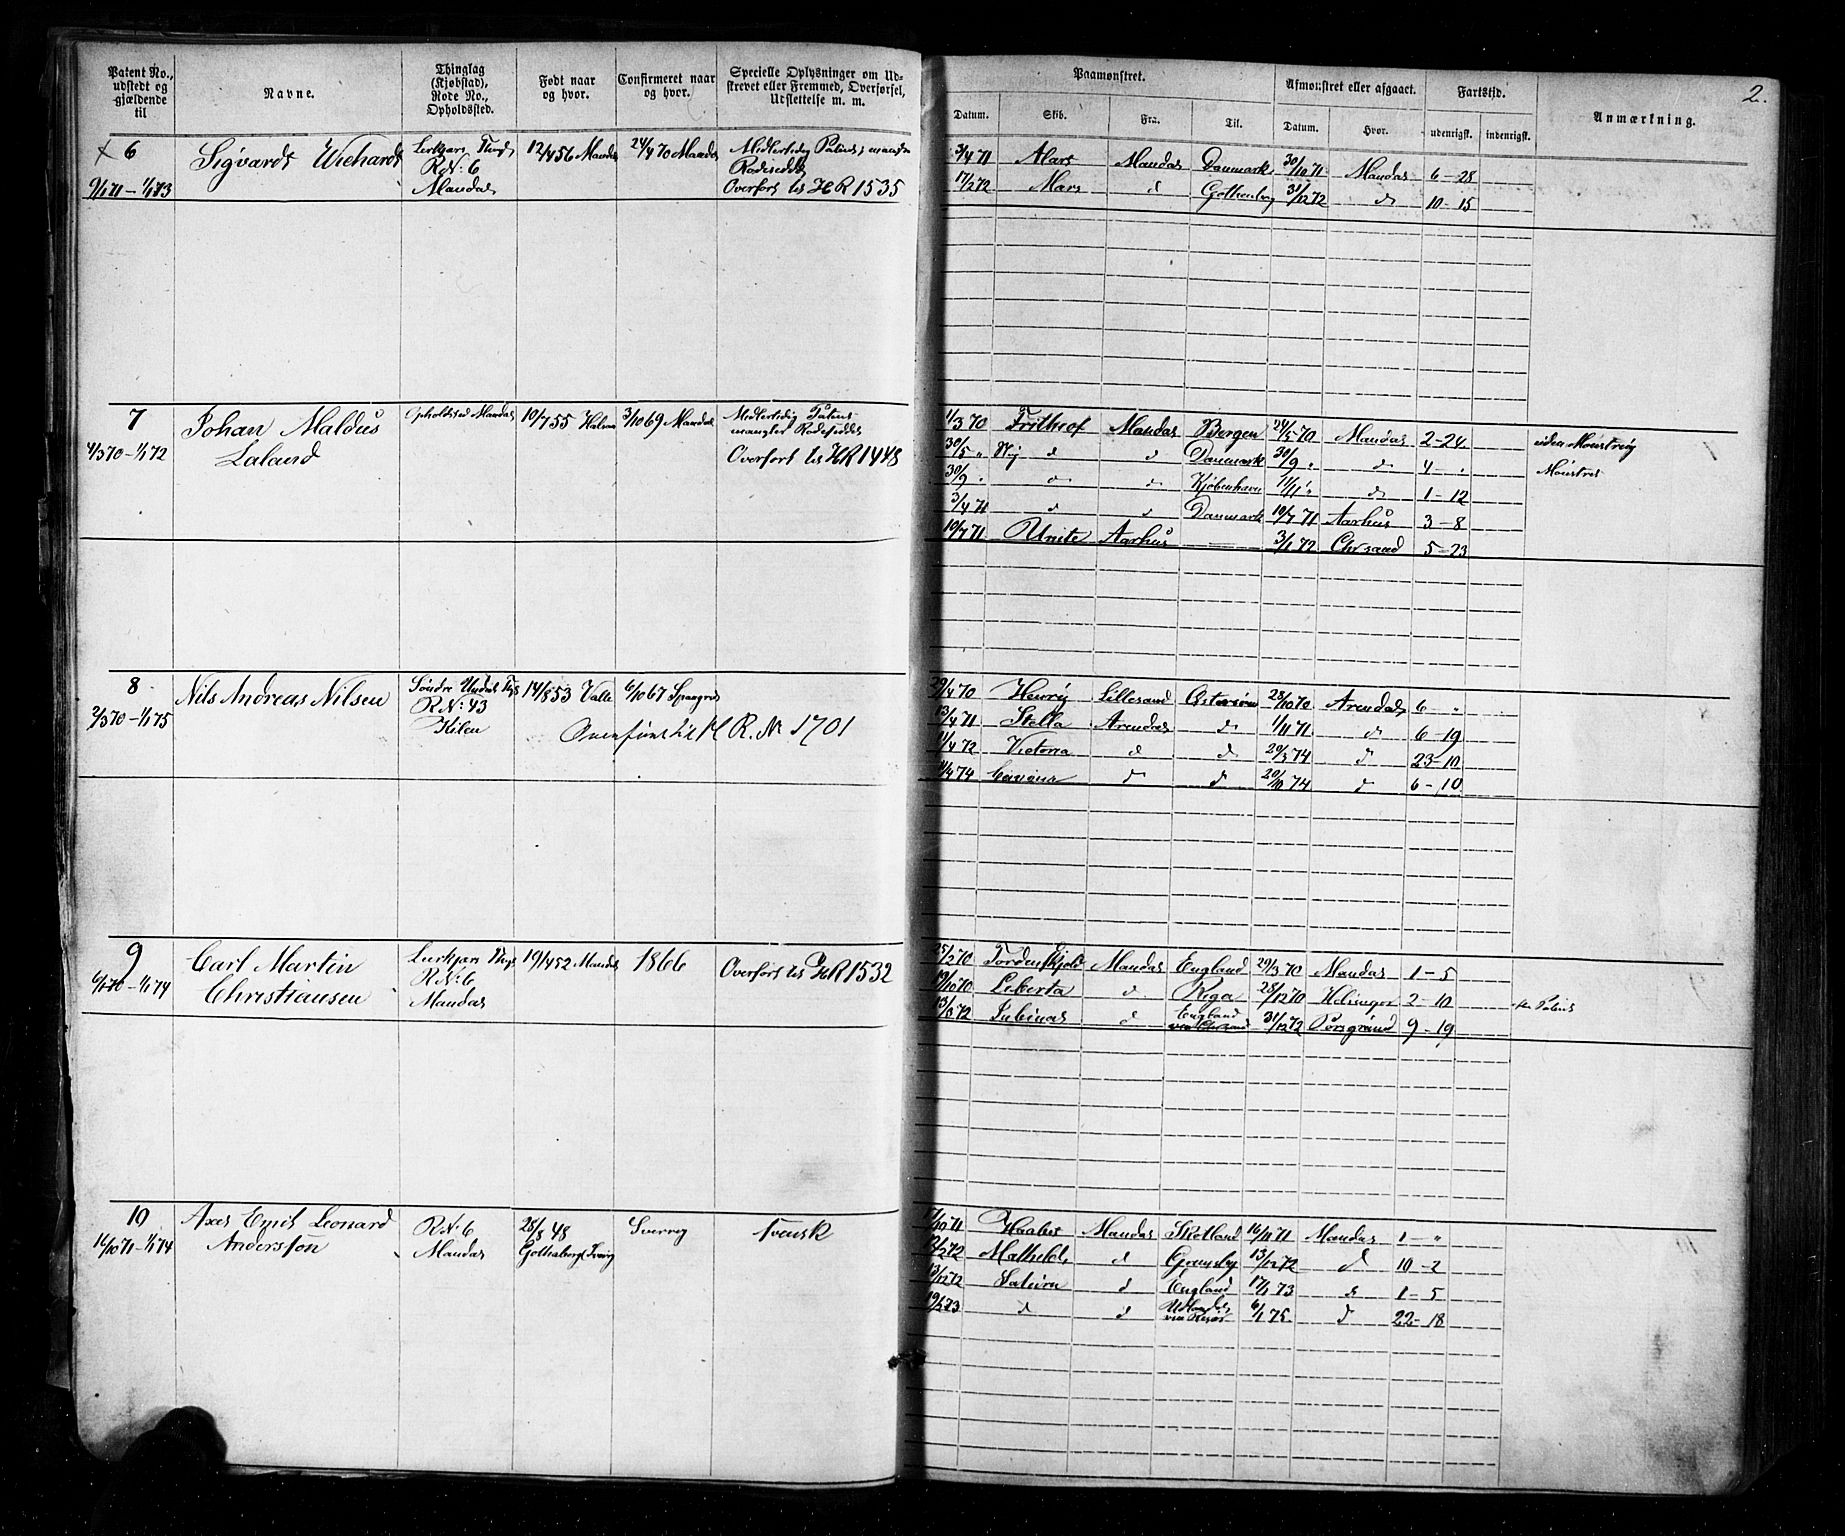 Patent No., udstedt og gjældende til
Navne.
Thinglag (Kjøbstad), Rode No., Opholdssted.
Født naar og hvor.
Confirmeret naar og hvor.
Specielle Oplysninger om Udskrevet eller Fremmed, Overførsel, Udslettelse m. m.
Paamønstret.
Afmønstret eller afgaaet.
Fartstid.
Anmærkning.
2.
Datum.
Skib.
Fra.
Til.
Datum.
Hvor.
udenrigsk.
indenrigsk.
6
Sigvard Wichard
R.N: 6
Mandal
12/4 56 Mandal
24/4 70 Mandal
Midlertidig Patent, mangler
Rodeseddel
Overført til HR 1535
3/4 71 Mars Mandal Danmark 30/10 71 Mandal 6-28
17/2 72 Mars d Gothenborg 31/12 72 d 10-15
7
4/3 70 - 1/1 72
Johan Maldus
Laland
Opholdssted Mandal
10/7 55
3/10 69 Mandal
Midlertidig Patent
mangler Rodeseddel
Overført til HR 1448
1/3 70 Frithiof Mandal Bergen 24/5 70 Mandal 2-24
30/5 " d d Danmark 30/9 " d 4 - "
uden Mønstring
30/9 " d d Kjøbenhavn 11/11 " d 1-12
Mønstret
3/4 71 d d Danmark 10/7 71 Aarhus 3-8
10/7 71 Unite Aarhus — 3/1 72 Chrsand 5-23
8
2/3 70 - 1/1 75
Nils Andreas Nilsen
Søndre Undal
R.N: 43
Kilen
14/8 53 Valle
6/10 67
Overført til H.R. No 1701
29/4 70 Henry Lillesand 28/10 70 Arendal 6 - "
13/4 71 Stella Arendal d 1/11 71 d 6-19
11/4 72 Victoria d d 29/3 74 d 23-10
d d 20/10 74 d 6-10
9
Carl Martin
Christiansen
R.N: 6
Mandal
19/1 52 Mandal
1866
Overført til HR 1532
25/2 70 Tordenskjold Mandal England 29/3 70 Mandal 1-5
19/10 70 Liberta d Riga 28/12 70 Helsingør 2-10
d England 31/12 72 Porsgrund 9-19
10
16/10 71 - 1/1 74
Axel Emil Leonard
Andersson
R.N: 6
Mandal
28/8 48
Gothaborg Sverig
Sverrig
svensk
Mandal Skotland 16/11 71 Mandal 1 - "
Mathilde d Grimsby 13/12 72 d 10-2
13/12 72 Saturn d England 17/1 73 d 1-5
d d Udlandet 6/1 75 d 22-18